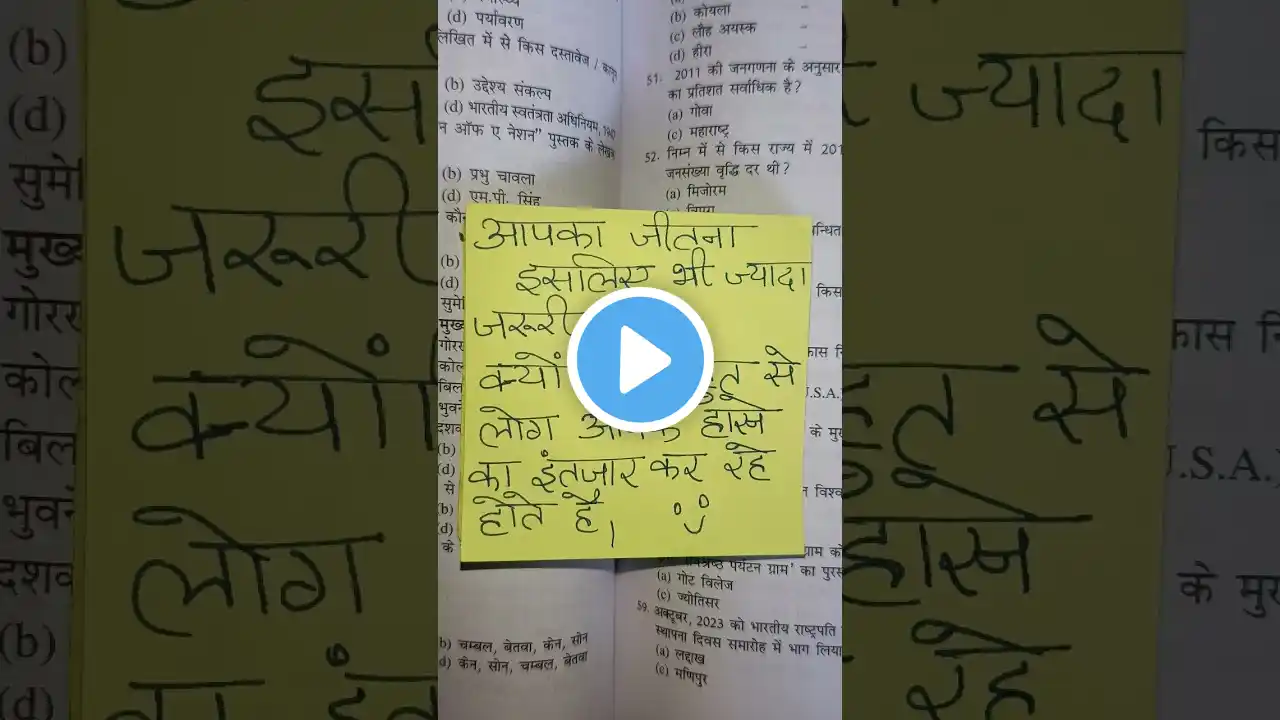 (d) पर्यावरण
लिखित में से किस दस्तावेज /
(b) उद्देश्य संकल्प
(d) भारतीय स्वतंत्रता अधिनियम,
न ऑफ ए नेशन” पुस्तक के लेखक
(b) प्रभु चावला
(d) एम.पी. सिंह
(b)
(d)
(b) कोयला
(c) लौह अयस्क
(d) हीरा
51. 2011 की जनगणना के अनुसार
का प्रतिशत सर्वाधिक है?
(a) गोवा
(c) महाराष्ट्र
52. निम्न में से किस राज्य में 201
जनसंख्या वृद्धि दर थी?
(a) मिजोरम
आपका जीतना
इसलिए भी ज्यादा
जरूरी
क्यों से
लोग हारने
का इंतजार कर रहे
होते है।
किस
के मु
(b)
(d)
से
(b)
(d)
के
b) चम्बल, बेतवा, केन, सोन
d) केन, सोन, चम्बल, बेतवा
पर्यटन ग्राम' का पुरस्
(a) गोट विलेज
(c) ज्योतिसर
59. अक्टूबर, 2023 को भारतीय राष्ट्रपति
स्थापना दिवस समारोह में भाग लिया
(a) लद्दाख
(c) मणिपुर